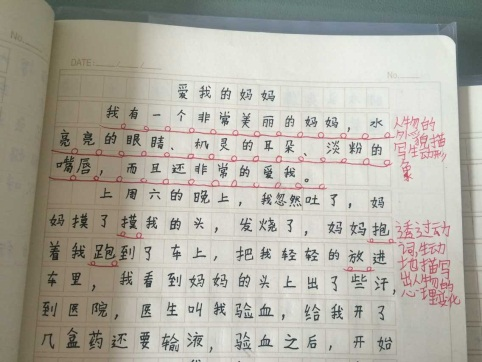 DATE: / /
No.
爱我的妈妈
我有一个非常美丽的妈妈，水
亮亮的眼睛、机灵的耳朵、淡粉的
嘴唇，而且还非常的爱我。
上周六的晚上，我忽然吐了，妈
妈摸了摸我的头，发烧了，妈妈抱
着我跑到了车上，把我轻轻的放进
车里，我看到妈妈的头上出了些汗，
到医院，医生叫我验血，给我开了
几盒药还要输液，验血之后，开始
人物的
外貌描
写生动形
象
透过动
词,生动
地描写
出人物的
心理变化